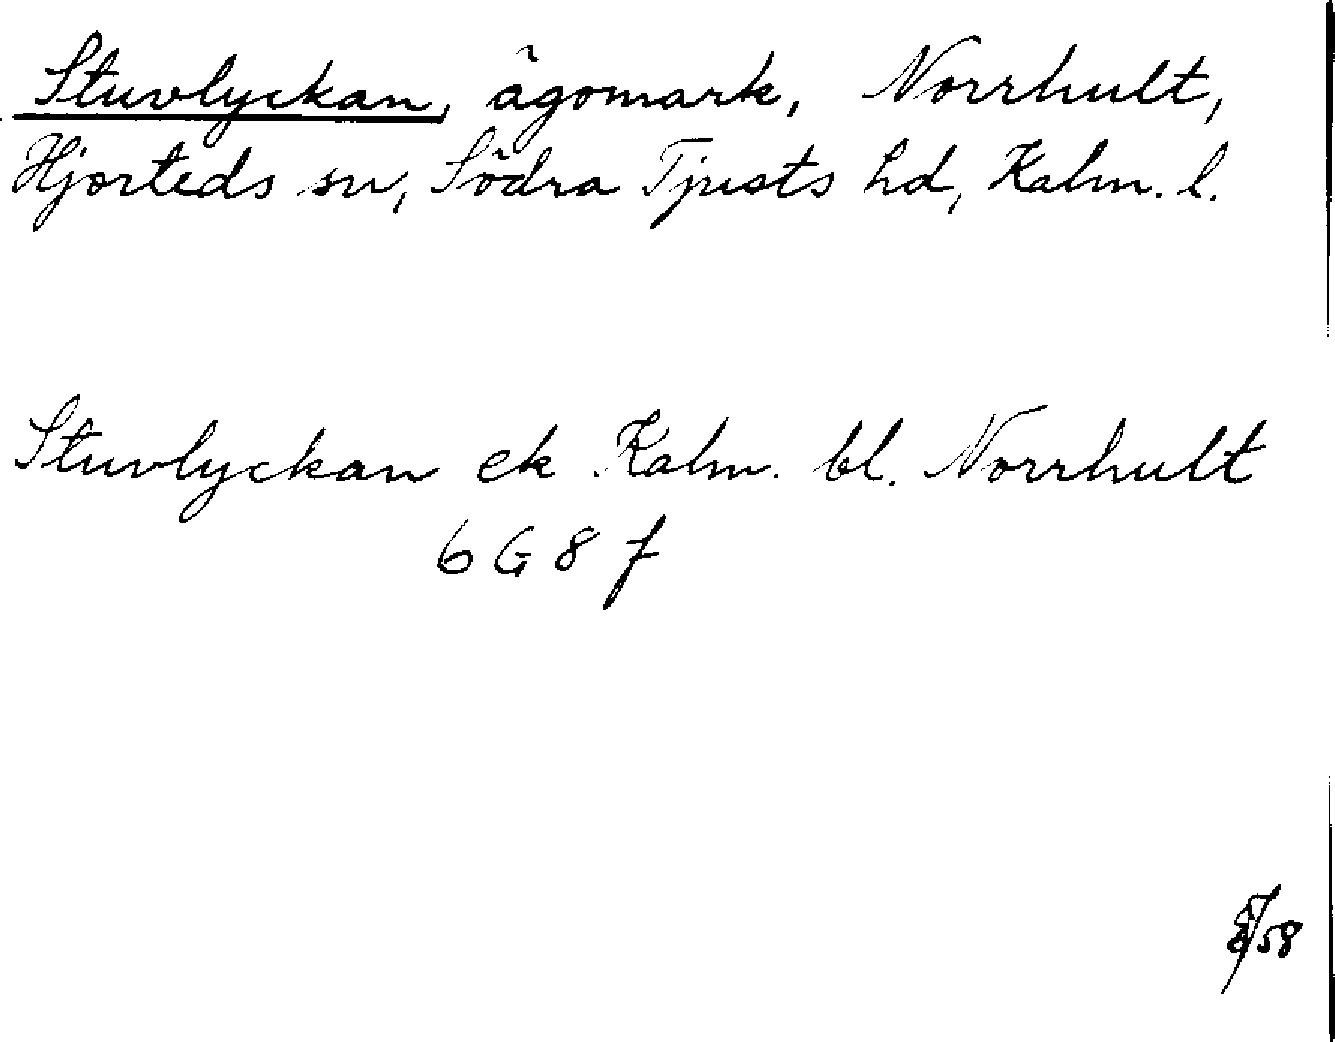 Stuvlyckan, ägomark, Norrhult,
Hjorteds sn, Södra Tjusts hd, Kalm. l.
Stuvlyckan ek Kalm. bl. Norrhult
6 G 8 f
58